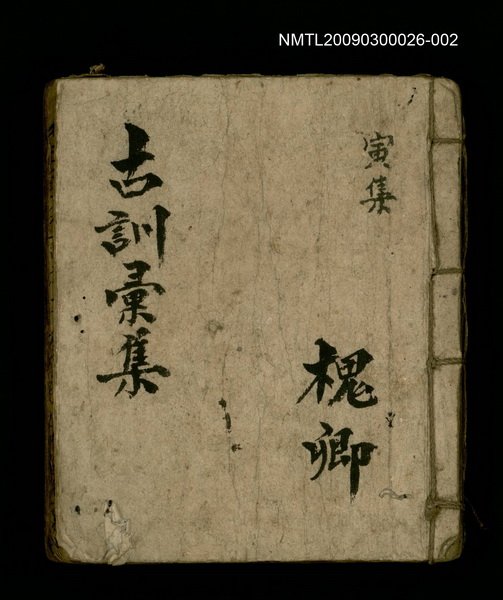 NMTL20090300026-002
寅集
槐卿
古訓彙集